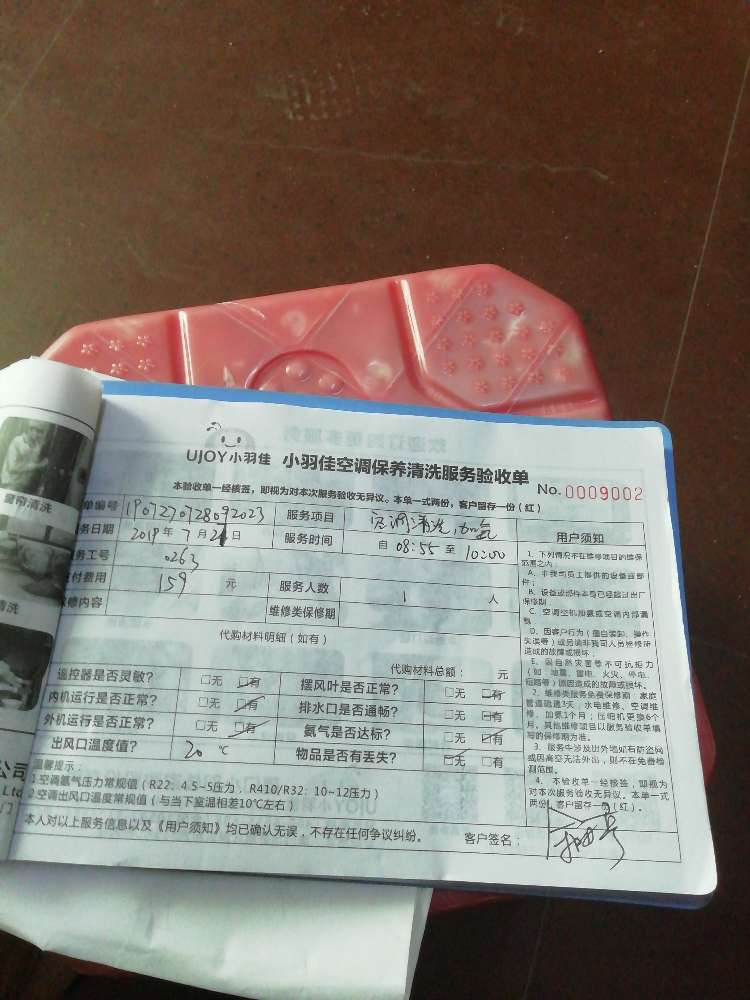 窗帘清洗
清洗
公司
Ltd
门
UJOY小羽佳 小羽佳空调保养清洗服务验收单
No. 0009002
本验收单一经接签,即视为对本次服务验收无异议。本单一式两份,客户留存一份(红)
单编号 1907270928092023 服务项目 空调清洗,加氨
务日期 2019年7月28日 服务时间 自08:55至10:00
务工号 0263
付费用 159 元 服务人数 1 人
维修内容 维修类保期
代购材料明细(如有)
代购材料总额: 元
遥控器是否灵敏? □无 □有 摆风叶是否正常? □无 □有
内机运行是否正常? □无 □有 排水口是否通畅? □无 □有
外机运行是否正常? □无 □有 氨气是否达标? □无 □有
出风口温度值? 20 ℃ 物品是否有丢失? □无 □有
温馨提示:
1.空调氨气压力常规值(R22:4.5~5压力,R410/R32:10~12压力)
2.空调出风口温度常规值(与当下室温相差10℃左右)
本人对以上服务信息以及《用户须知》均已确认无误,不存在任何争议纠纷。 客户签名:
用户须知
1、下列情况不在维修项目的维保
范围之内:
A、非我司员工提供的设备或部
件;
B、设备或部件本身已经超过出厂
保修期
C、空调空机加氨或空调内部漏
氨
D、因客户行为(擅自装卸、操作
失误等)或另请非我司人员维修所
造成的故障或损坏;
E、因自然灾害等不可抗拒力
(如:地震、雷电、火灾、停电、
短路等)原因造成的故障或损坏。
2、维修类服务免费保修期:家庭
管道疏通3天,水电维修、空调维
修、加氨1个月;压缩机更换6个
月,其他维修项目以服务验收单填
写的保修期为准。
3、服务中涉及出外墙如有防盗网
或因高空无法外出,则不在免费检
测范围。
4、本验收单一经接签,即视为
对本次服务验收无异议。本单一式
两份,客户留存一份(红)。